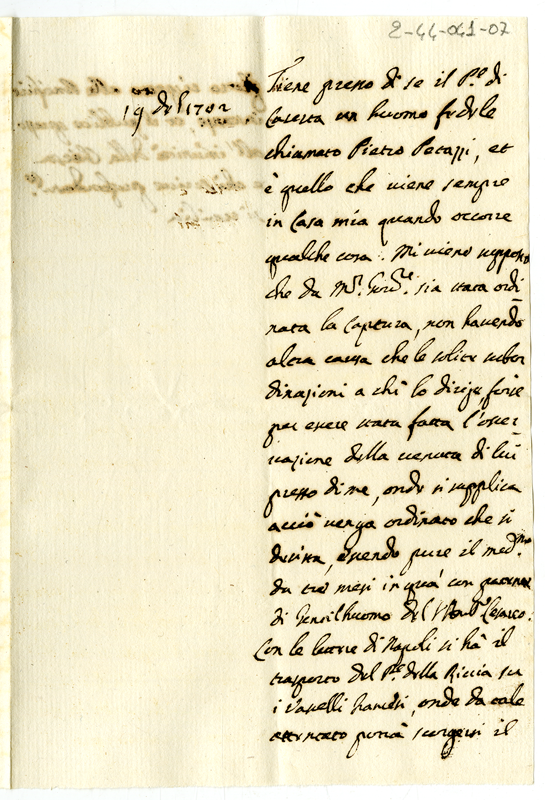 2-44-041-07
19 d. 1702
Tiene presso di se il P.e di
Caserta un huomo fedele
chiamato Pietro Petazzi, et
è quello che viene sempre
in Casa mia quando occorre
qualche cosa. Mi viene supposto
che da M.r Gov.re sia stata ordi
nata la Captura, non havendo
altra causa che le solite subor
dinazioni a chi lo dirige, forse
per essere stata fatta l'osser
vazione della venuta di lui
presso di me, onde si supplica
acciò venga ordinato che si
desista, essendo pure il med.mo
da tre mesi in quà con patente
di Gentilhuomo del Cesareo.
Con le lettere di Napoli si hà il
trasporto del P.e della Riccia su
i Vascelli francesi, onde da tale
attentato potrà scorgersi il